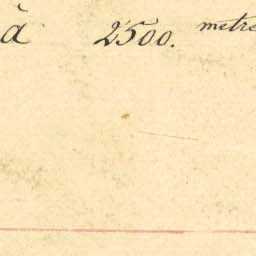 à 2500. metre